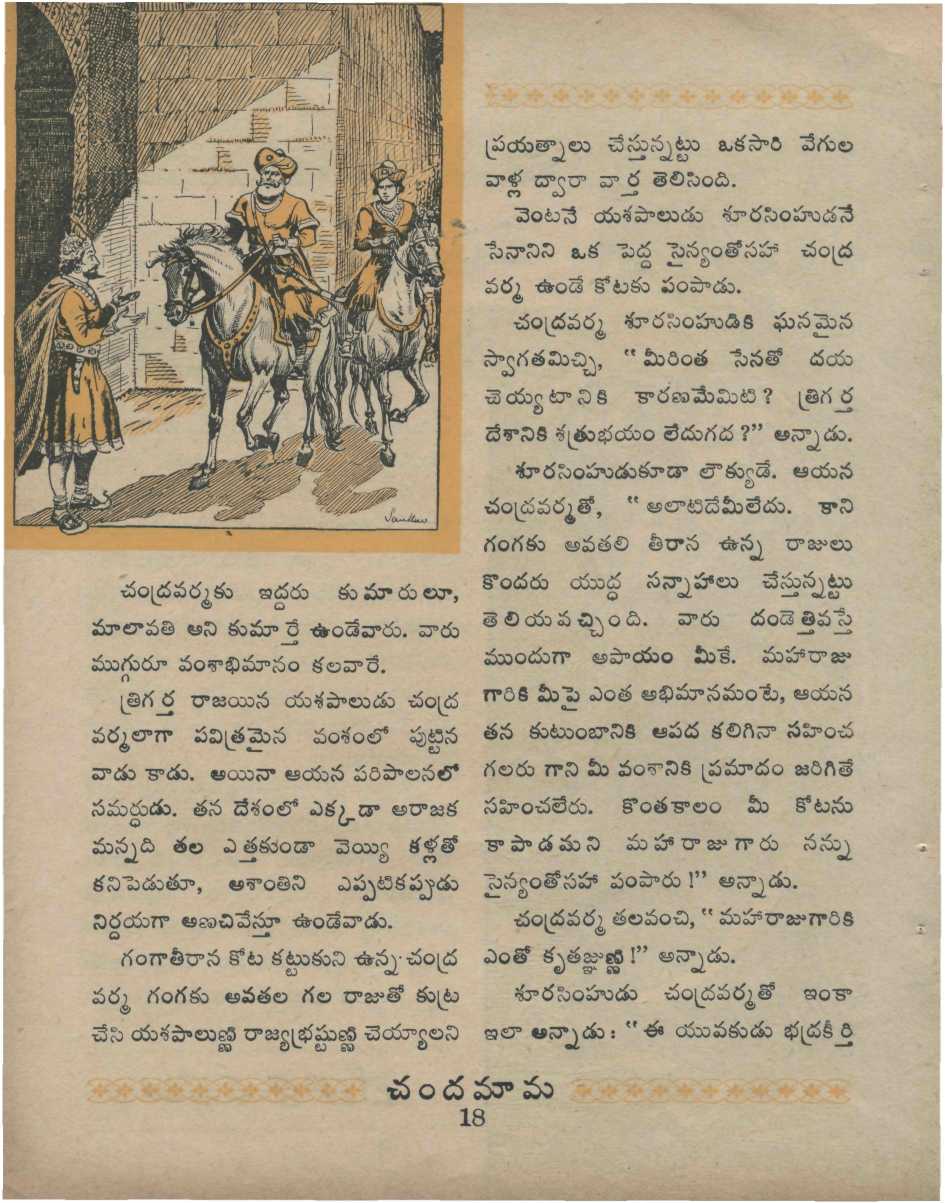 Sankar
చంద్రవర్మకు ఇద్దరు కుమారులూ,
మాలావతి అని కుమార్తే ఉండేవారు. వారు
ముగ్గురూ వంశాభిమానం కలవారే.
త్రిగర్త రాజయిన యశపాలుడు చంద్ర
వర్మలాగా పవిత్రమైన వంశంలో పుట్టిన
వాడు కాడు. అయినా ఆయన పరిపాలనలో
సమర్ధుడు. తన దేశంలో ఎక్కడా అరాజక
మన్నది తల ఎత్తకుండా వెయ్యి కళ్లతో
కనిపెడుతూ, అశాంతిని ఎప్పటికప్పుడు
నిర్దయగా అణచివేస్తూ ఉండేవాడు.
గంగాతీరాన కోట కట్టుకుని ఉన్న చంద్ర
వర్మ గంగకు అవతల గల రాజుతో కుట్ర
చేసి యశపాలుణ్ణి రాజ్యభ్రష్టుణ్ణి చెయ్యాలని
ప్రయత్నాలు చేస్తున్నట్టు ఒకసారి వేగుల
వాళ్ల ద్వారా వార్త తెలిసింది.
వెంటనే యశపాలుడు శూరసింహుడనే
సేనానిని ఒక పెద్ద సైన్యంతోసహా చంద్ర
వర్మ ఉండే కోటకు పంపాడు.
చంద్రవర్మ శూరసింహుడికి ఘనమైన
స్వాగతమిచ్చి, “మీరింత సేనతో దయ
చెయ్యటానికి కారణమేమిటి? త్రిగర్త
దేశానికి శత్రుభయం లేదుగద?” అన్నాడు.
శూరసింహుడుకూడా లౌక్యుడే. ఆయన
చంద్రవర్మతో, “అలాటిదేమీలేదు. కాని
గంగకు అవతలి తీరాన ఉన్న రాజులు
కొందరు యుద్ధ సన్నాహాలు చేస్తున్నట్టు
తెలియవచ్చింది. వారు దండెత్తివస్తే
ముందుగా అపాయం మీకే. మహారాజు
గారికి మీపై ఎంత అభిమానమంటే, ఆయన
తన కుటుంబానికి ఆపద కలిగినా సహించ
గలరు గాని మీ వంశానికి ప్రమాదం జరిగితే
సహించలేరు. కొంతకాలం మీ కోటను
కాపాడమని మహారాజుగారు నన్ను
సైన్యంతోసహా పంపారు!” అన్నాడు.
చంద్రవర్మ తలవంచి, “మహారాజుగారికి
ఎంతో కృతజ్ఞుణ్ణి!” అన్నాడు.
శూరసింహుడు చంద్రవర్మతో ఇంకా
ఇలా అన్నాడు: “ఈ యువకుడు భద్రకీర్తి
చందమామ
18